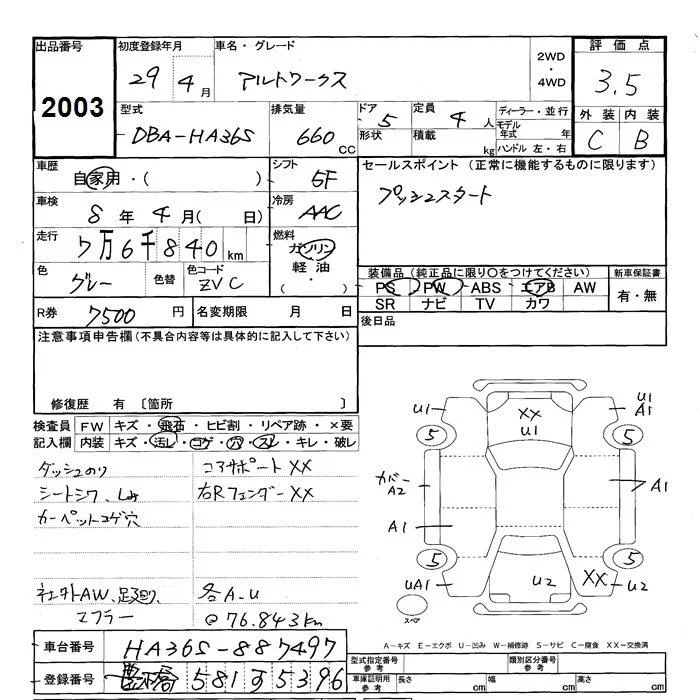 出品番号
2003
初度登録年月
29年4月
車名・グレード
アルトワークス
2WD
・
4WD
評価点
3.5
外装 内装
C B
型式
DBA-HA36S
排気量
660 CC
ドア
5
形状
定員
4 人
積載 kg
ディーラー・並行
モデル年式 年
ハンドル 左・右
車歴
自家用・( )
シフト
5F
セールスポイント (正常に機能するものに限ります)
プッシュスタート
車検
8年4月( 日)
冷房
AAC
走行
7万6千840km
燃料
ガソリン
軽油
・
色
グレー
色替
色コード
ZVC
装備品 (純正品に限り○をつけてください)
新車保証書
PS PW ABS エアB AW
有・無
SR ナビ TV カワ
R券
7500 円
名変期限 月 日
後日品
注意事項申告欄 (不具合内容等は具体的に記入して下さい)
修復歴 有 〔箇所
検査員
記入欄
FW キズ・飛石・ヒビ割・リペア跡・×要
内装 キズ・汚レ・コゲ・穴・スレ・キレ・破レ
ダッシュのり
コアサポートXX
シートシワ、しみ
右RフェンダーXX
カーペットコゲ穴
社外AW、足廻り、
各A.U
マフラー
@76.843km
U1
XX
U1
U1
A1
5
5
カバー
A2
A1
A1
5
5
UA1
U2
XX
U2
スペア
A-キズ E-エクボ U-凹み W-補修跡 S-サビ C-腐食 XX-交換済
車台番号
HA36S-887497
登録番号
581 す 5396
型式指定番号
参考
類別区分番号
参考
車庫証明用
参考
長さ cm
幅 cm
高さ cm